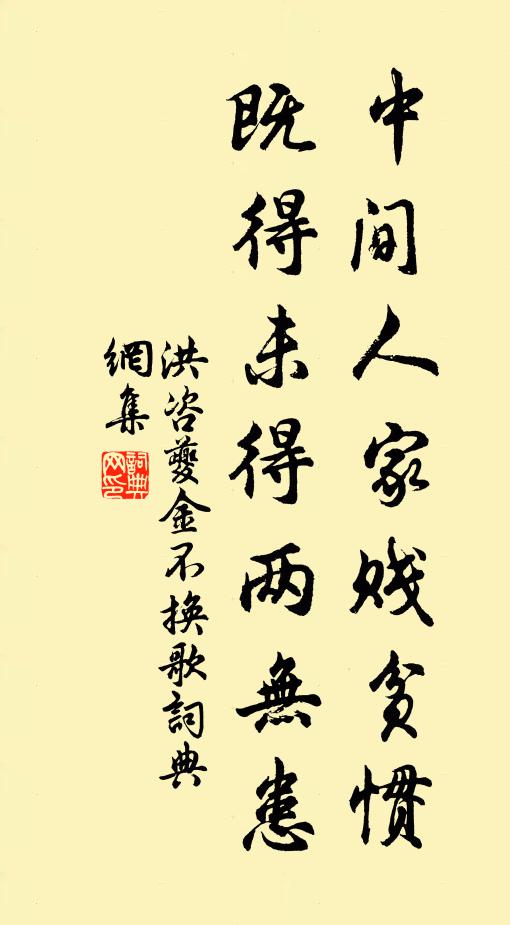 中间人家贱贫惯
既得未得两無患
洪咨夔金不换歌詞典
網集
詞典网印